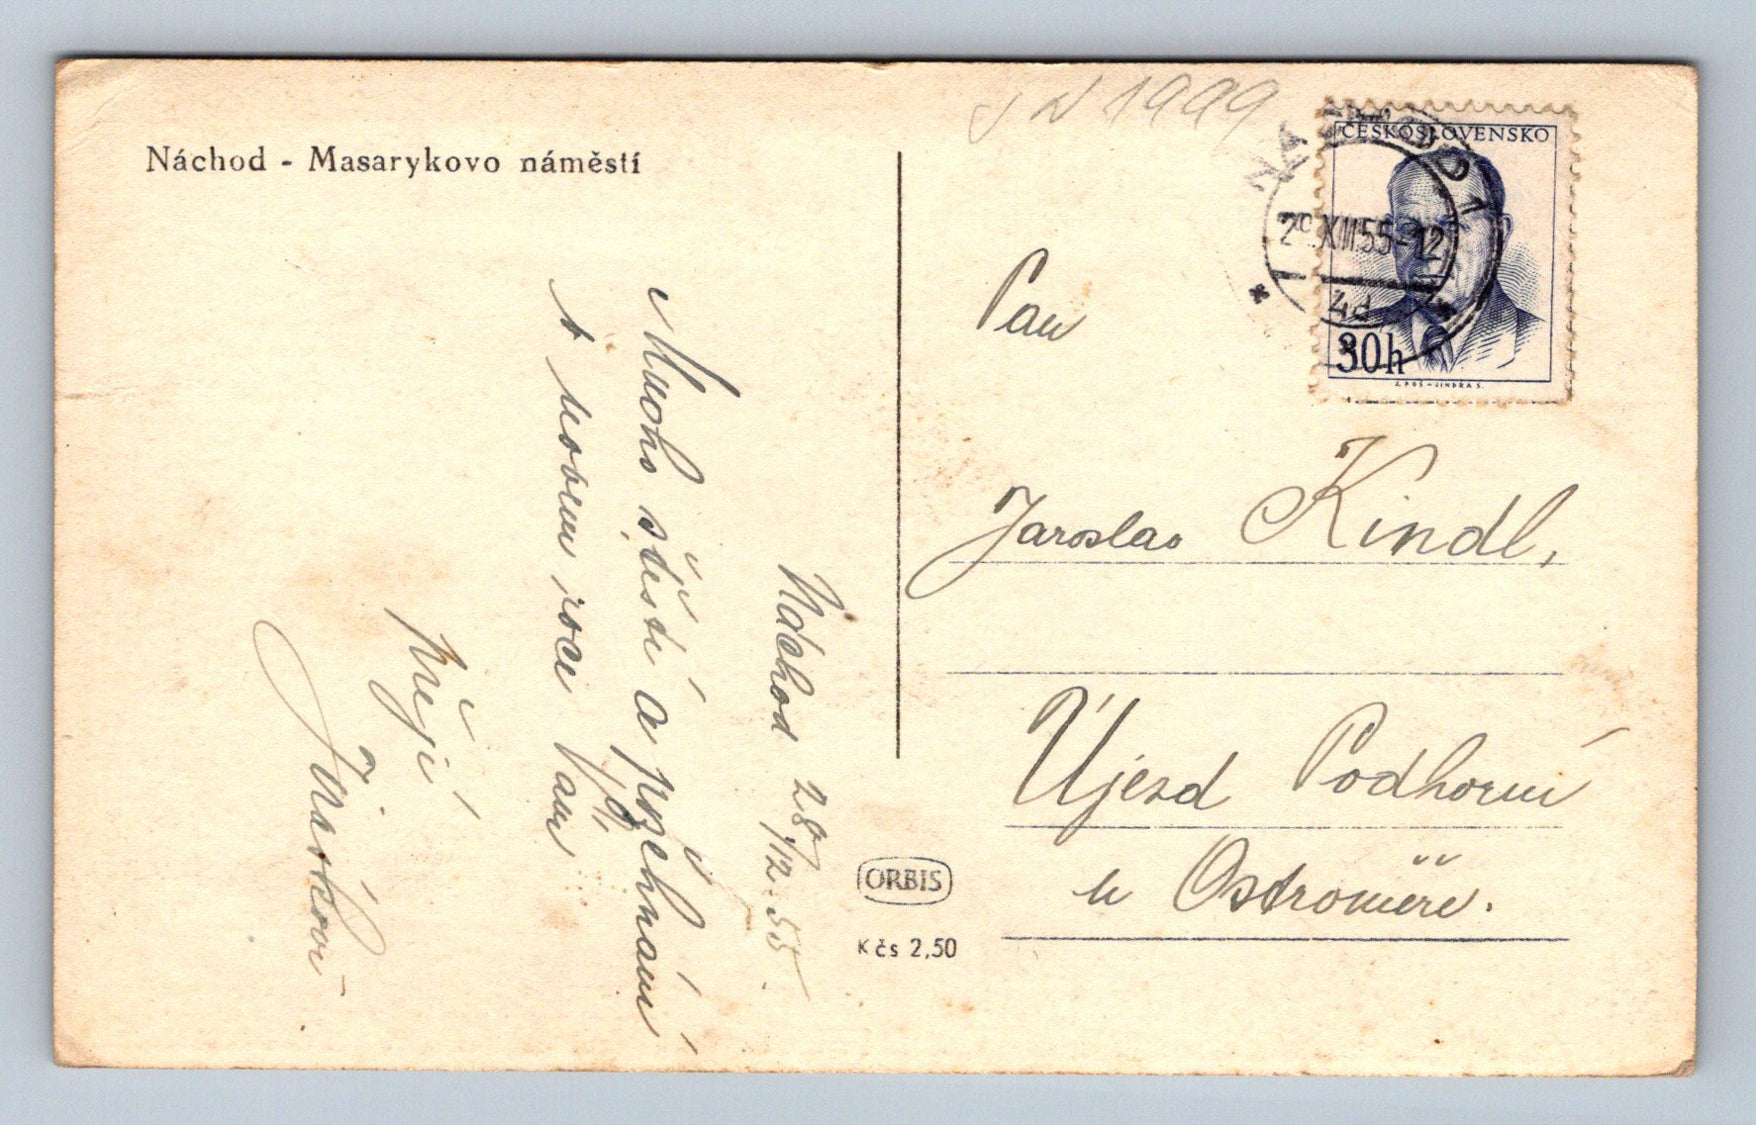 Náchod - Masarykovo náměstí
Náchod 28/12.55.
Mnoho štěstí a požehnání
v novém roce Vám
přejí
Jiráskovi
ORBIS
Kčs 2,50
1999
ČESKOSLOVENSKO
30h
NÁCHOD 1
XII 55-12
4d
Pan
Jaroslav Kindl,
Újezd Podhorní
u Ostroměře.